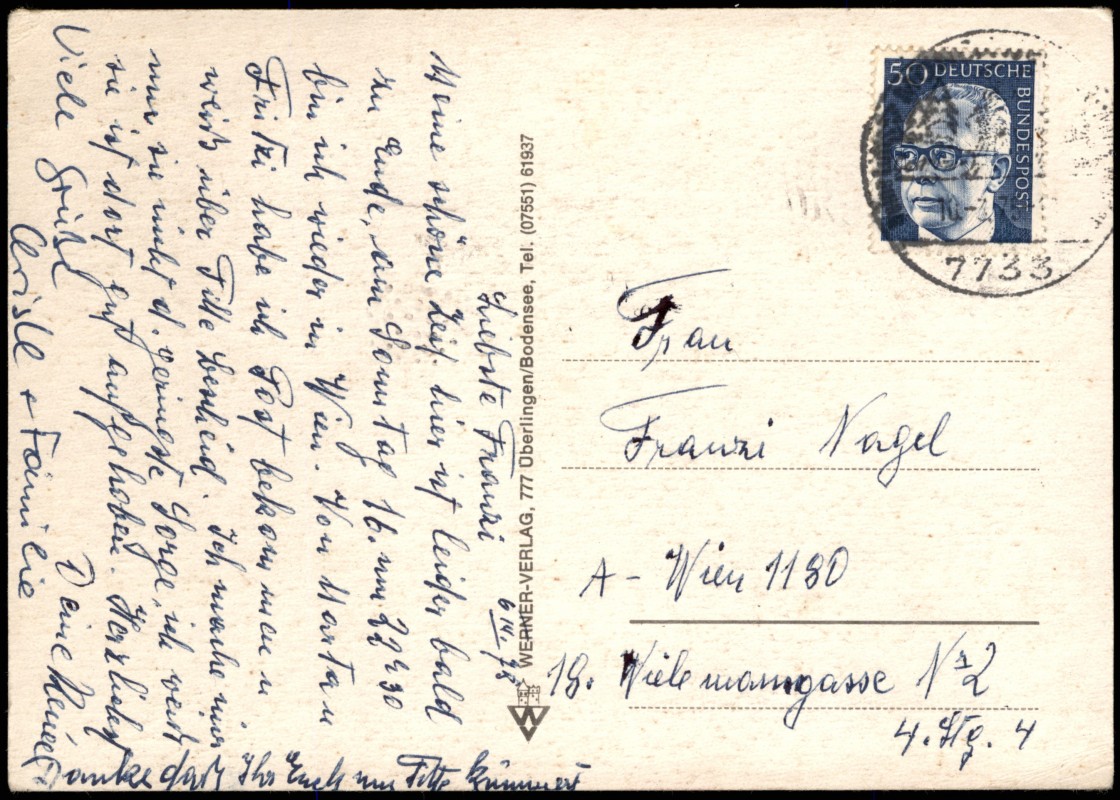 Liebste Franzi
Meine schöne Zeit hier ist leider bald
zu Ende, am Sonntag 16. um 22h30
bin ich wieder in Wien. Von Martan
Fritzi habe ich Post bekommen u
weiß über Fitte bescheid. Ich mache mir
um sie nicht d. geringste Sorge, ich weiß
sie ist dort gut aufgehoben. Herzlichst
Viele Grüße Deine
Christl + Familie
Danke daß Ihr Euch um Fitte kümmert
WERNER-VERLAG, 777 Überlingen/Bodensee, Tel. (07551) 61937
50 DEUTSCHE BUNDESPOST
7733
Frau
Franzi Nagel
A - Wien 1180
18. Nr 2
4. Stg. 4